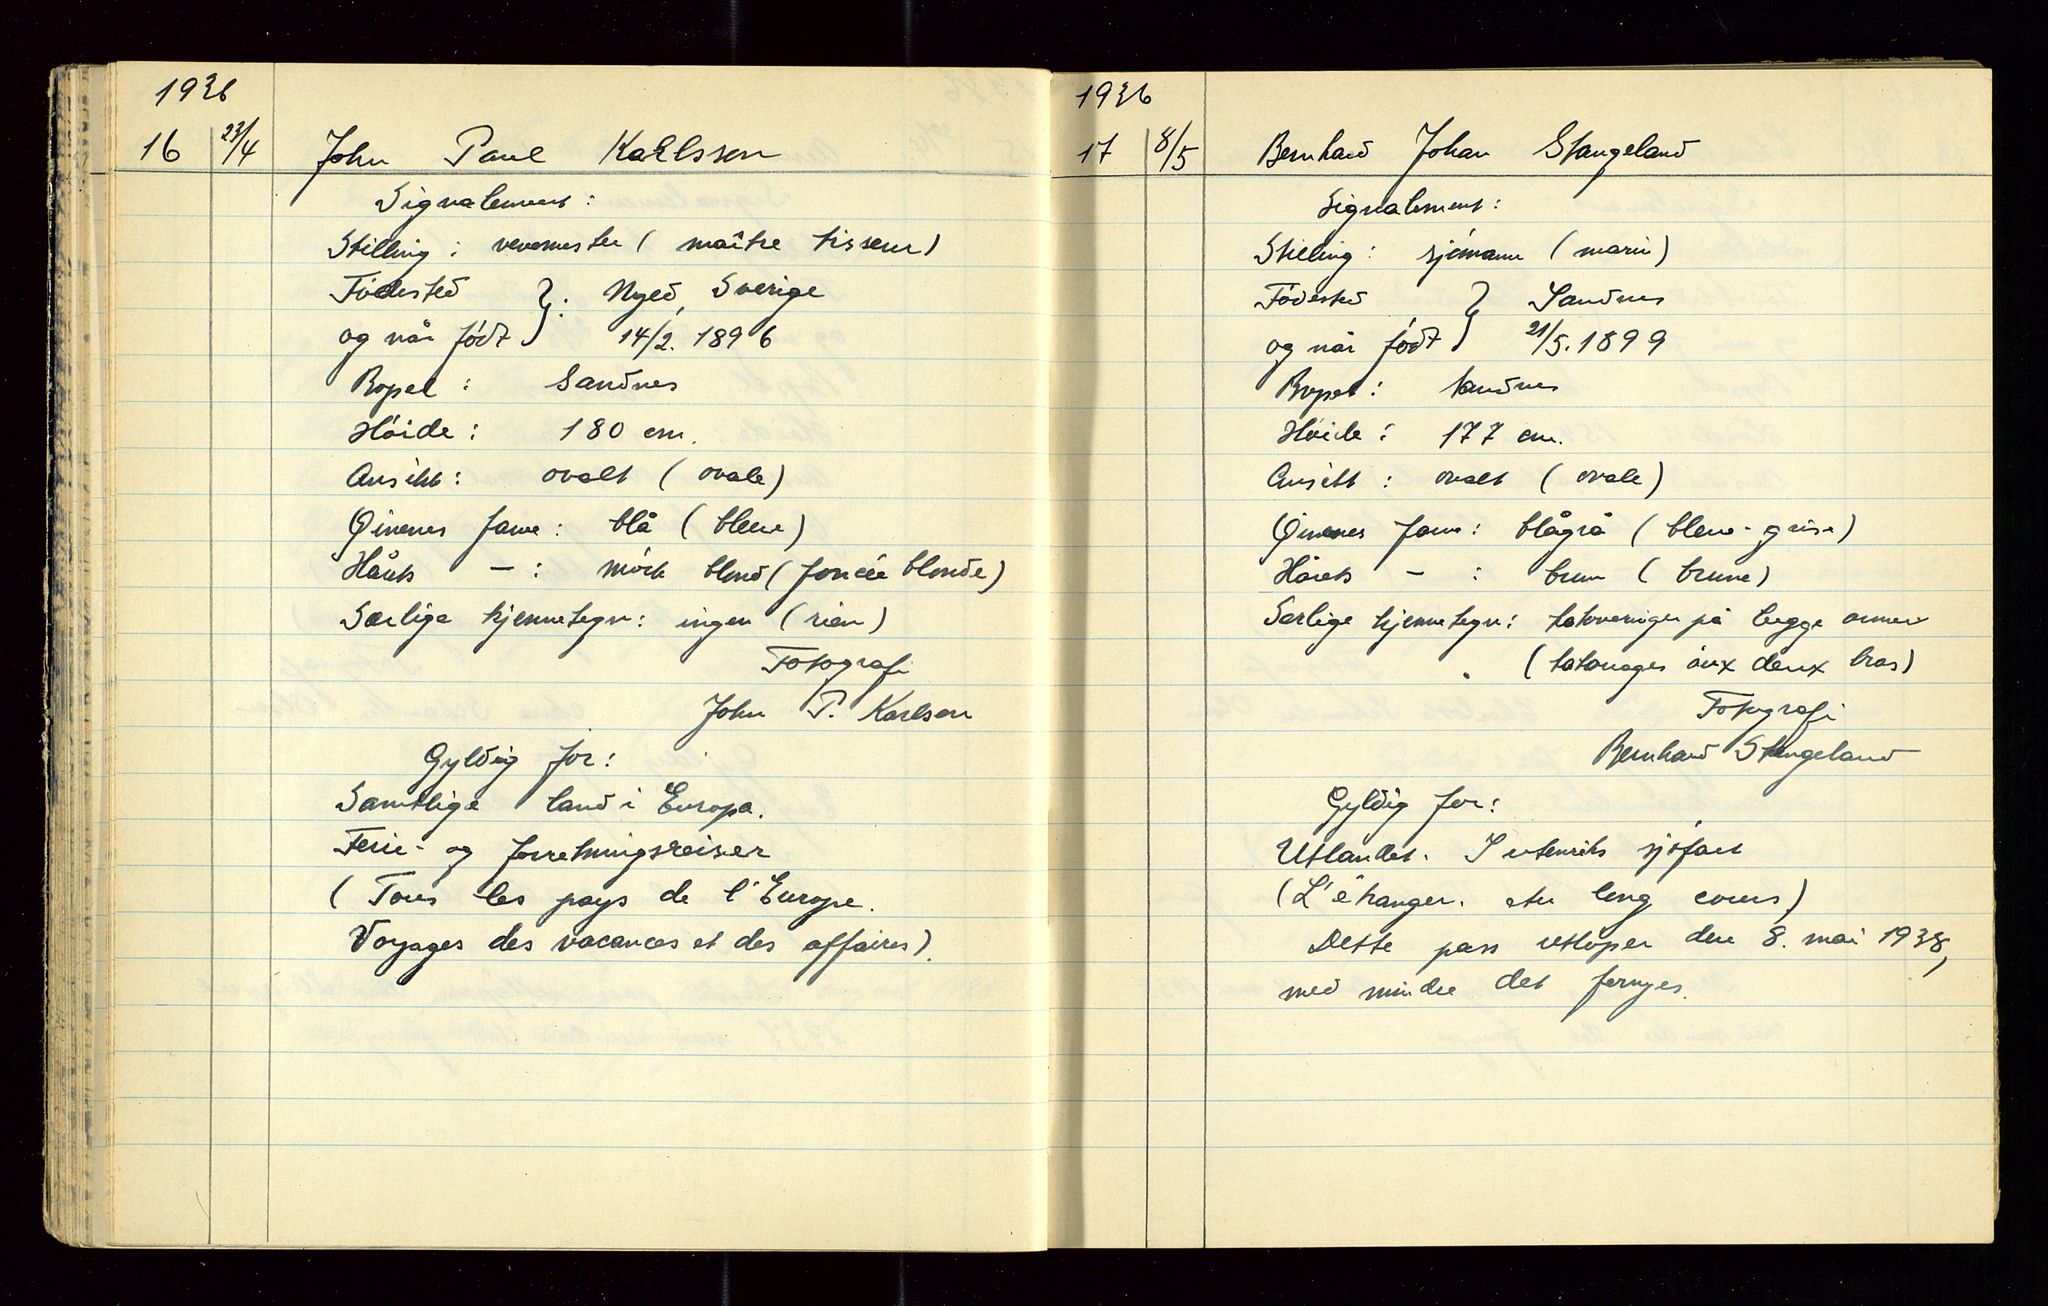 1936
16 23/4 John Paul Karlsson
Signalement:
Stilling: vevemester (maître tisseur)
Fødested } : Nyed, Sverige
og når født } 14/2. 1896
Bopel: Sandnes
Høide: 180 cm.
Ansikt: ovalt (ovale)
Øinenes farve: blå (bleue)
Hårets — : mörk blond (foncée blonde)
Særlige kjennetegn: ingen (rien)
Fotografi
John P. Karlson
Gyldig for:
Samtlige land i Europa.
Ferie- og forretningsreiser
(Tous les pays de l'Europe.
Voyages des vacances et des affaires).
1936
17 8/5 Bernhard Johan Stangeland
Signalement:
Stilling: sjømann (marin)
Fødested } Sandnes
og når født } 21/5. 1899
Bopel: Sandnes
Høide: 177 cm.
Ansikt: ovalt (ovale)
Øinenes farve: blågrå (bleue-grise)
Hårets — : brun (brune)
Særlige kjennetegn: tatoveringer på begge armer
(tatouages aux deux bras)
Fotografi
Bernhard Stangeland
Gyldig for:
Utlandet. I utenriks sjøfart
(L'étranger. au long cours)
Dette pass utløper den 8. mai 1938,
med mindre det fornyes.